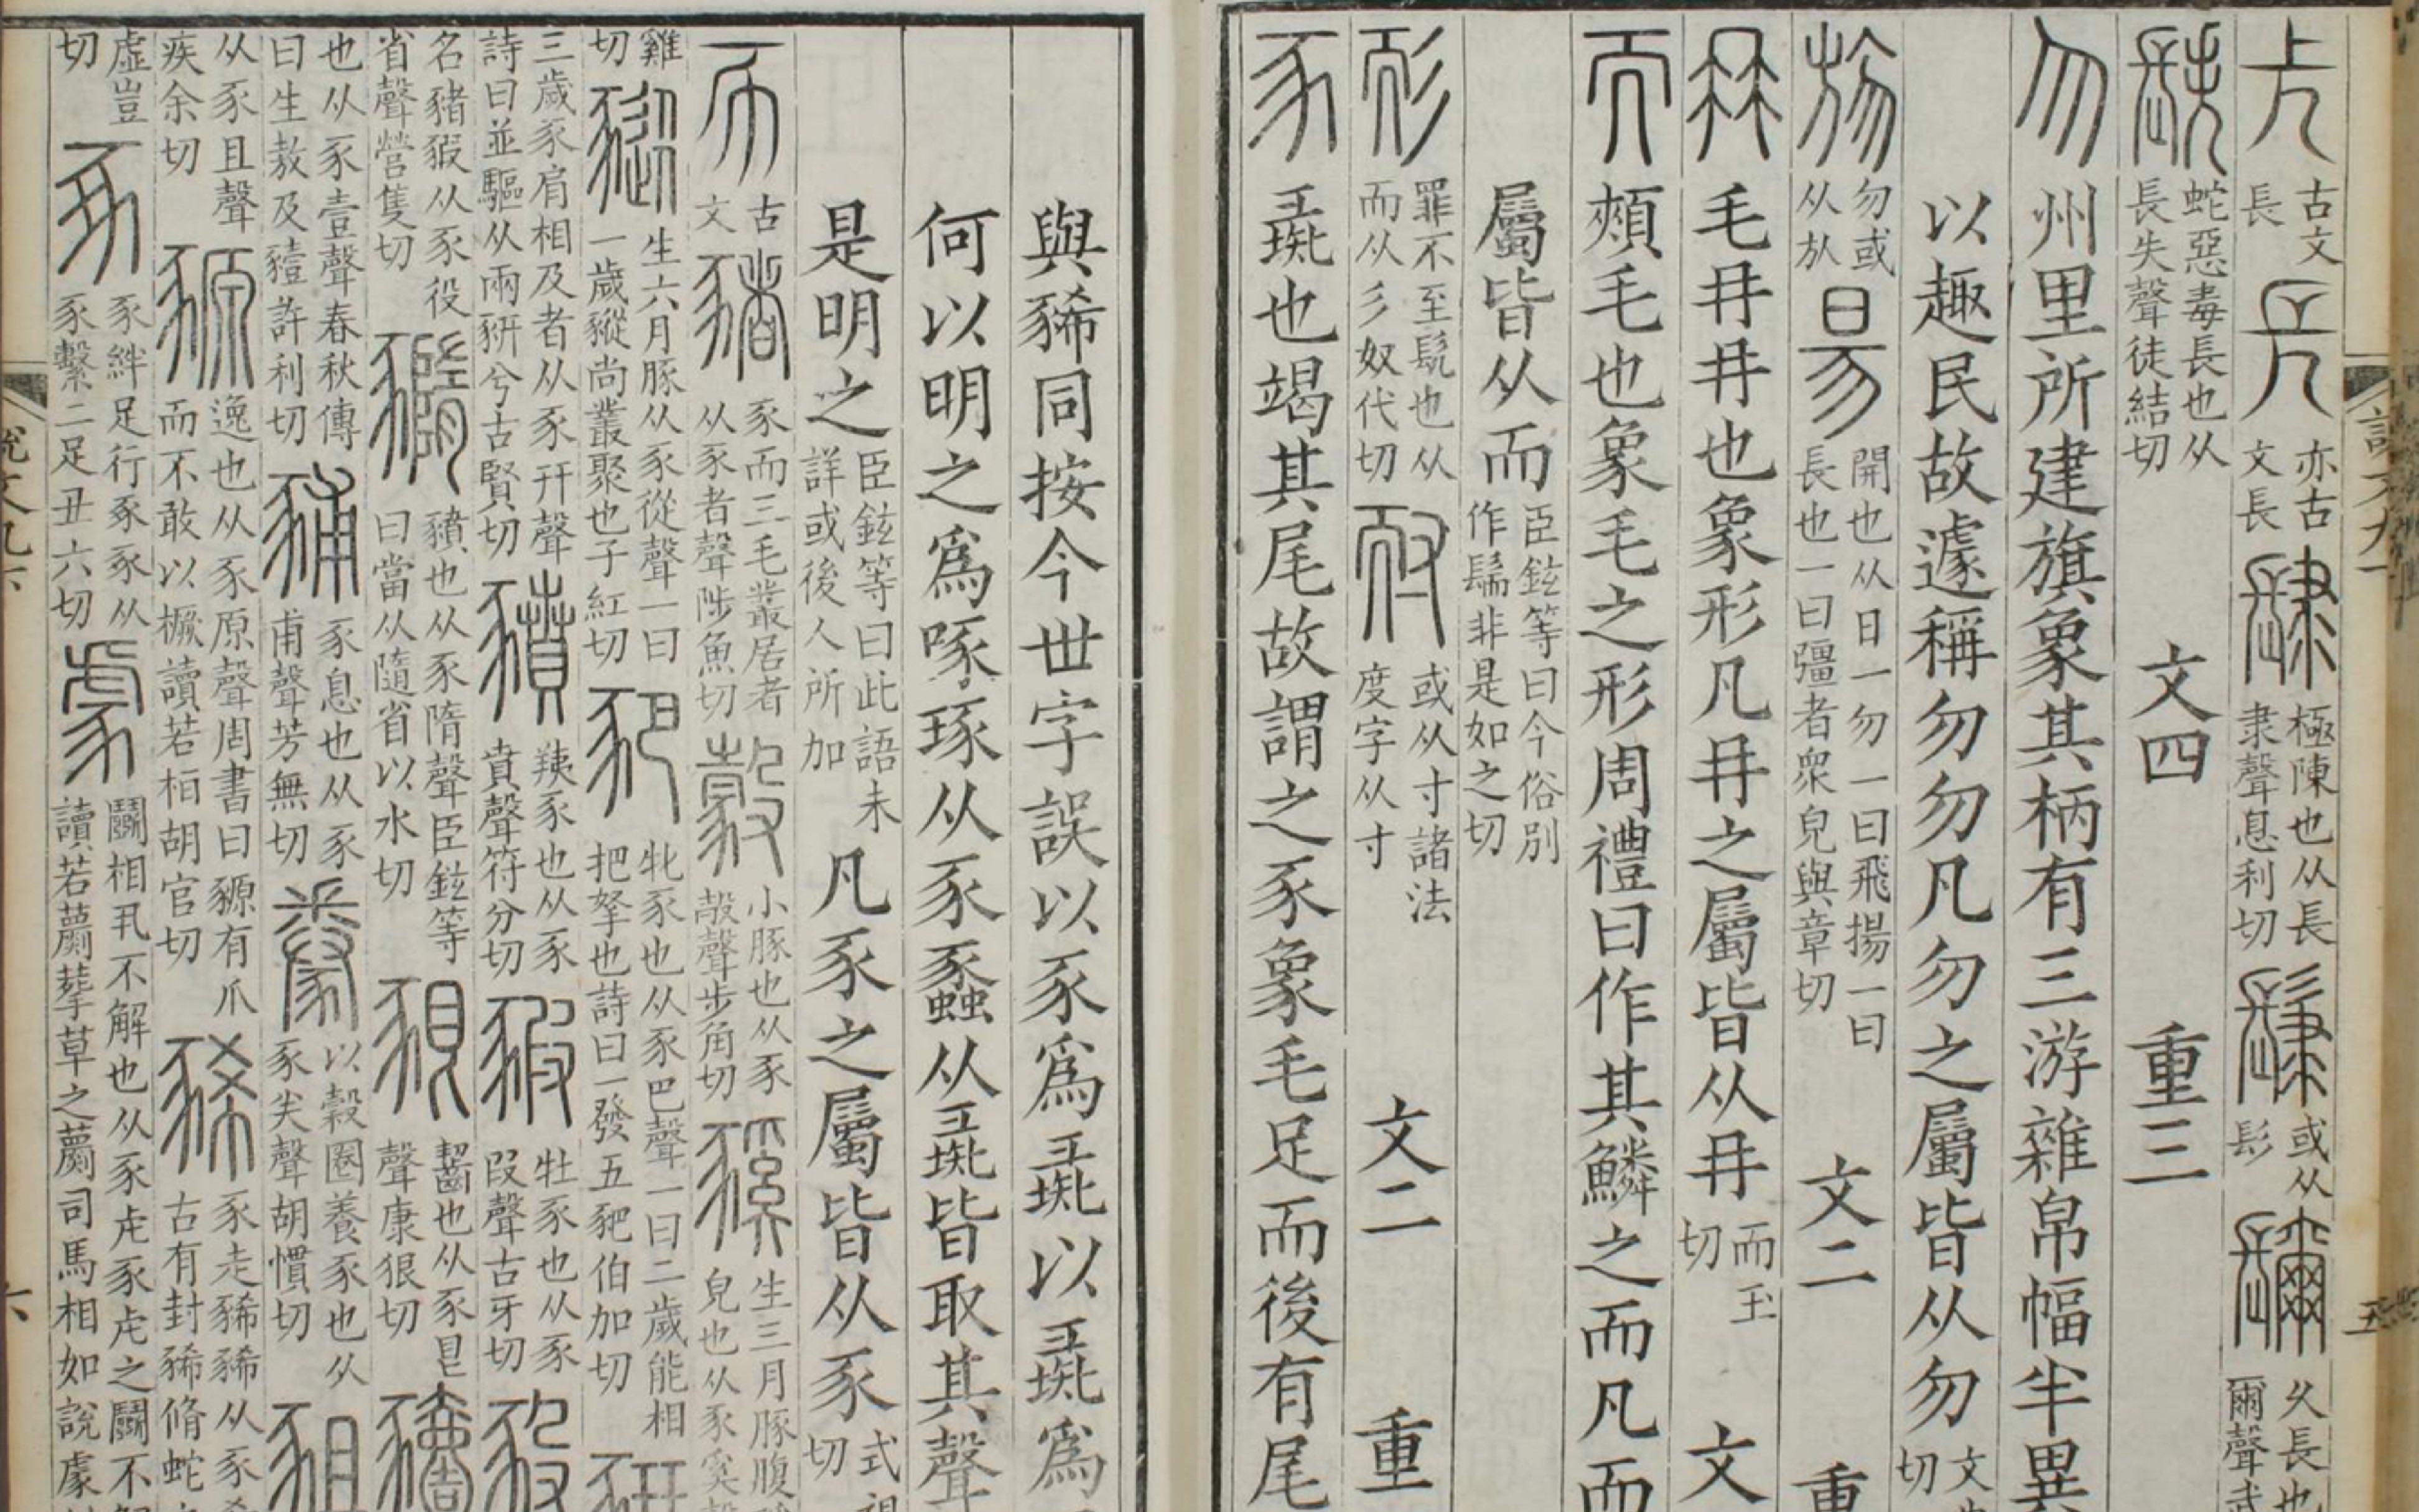 兏古文長𨱗亦古文長𨽸極陳也从長隶聲息利切𩬶或从髟镾久長也爾聲武
镻蛇惡毒長也从長失聲徒結切 文四 重三
勿州里所建旗象其柄有三游雜帛幅半異
以趣民故遽稱勿勿凡勿之屬皆从勿文切
𣃦勿或从㫃昜開也从日一勿一曰飛揚一曰長也一曰彊者眾皃與章切 文二 重
冄毛冄冄也象形凡冄之屬皆从冄而玉切 文
而頰毛也象毛之形周禮曰作其鱗之而凡而
屬皆从而臣鉉等曰今俗別作髵非是如之切
耏罪不至髡也从而从彡奴代切耐或从寸諸法度字从寸 文二 重
豕彘也竭其尾故謂之豕象毛足而後有尾
與豨同按今世字誤以豕爲彘以彘爲
何以明之爲啄琢从豕蟸从彘皆取其聲
是明之臣鉉等曰此語未詳或後人所加凡豕之屬皆从豕式視切
𢁓古文豬豕而三毛叢居者从豕者聲陟魚切豰小豚也从豕㱿聲步角切豯生三月豚腹皃也从豕奚聲
雞切豵生六月豚从豕從聲一曰一歲豵尚叢聚也子紅切豝牝豕也从豕巴聲一曰二歲能相把拏也詩曰一發五豝伯加切豜
三歲豕肩相及者从豕幵聲詩曰並驅从兩豜兮古賢切豶羠豕也从豕賁聲符分切豭牡豕也从豕叚聲古牙切豛
名豬豭从豕役省聲營隻切𧱰豶也从豕隋聲臣鉉等曰當从隨省以水切豤齧也从豕皀聲康很切豷
也从豕壹聲春秋傳曰生敖及豷許利切豧豕息也从豕甫聲芳無切豢以穀圈養豕也从豕𢍏聲胡慣切豠
从豕且聲疾余切豲逸也从豕原聲周書曰豲有爪而不敢以橛讀若桓胡官切豨豕走豨豨从豕希古有封豨脩蛇
虛豈切豖豕絆足行豖豖从豕繫二足丑六切豦鬬相丮不解也从豕虍豕虍之鬬不解讀若蘮䔯草之蘮司馬相如說豦
說文九下
六